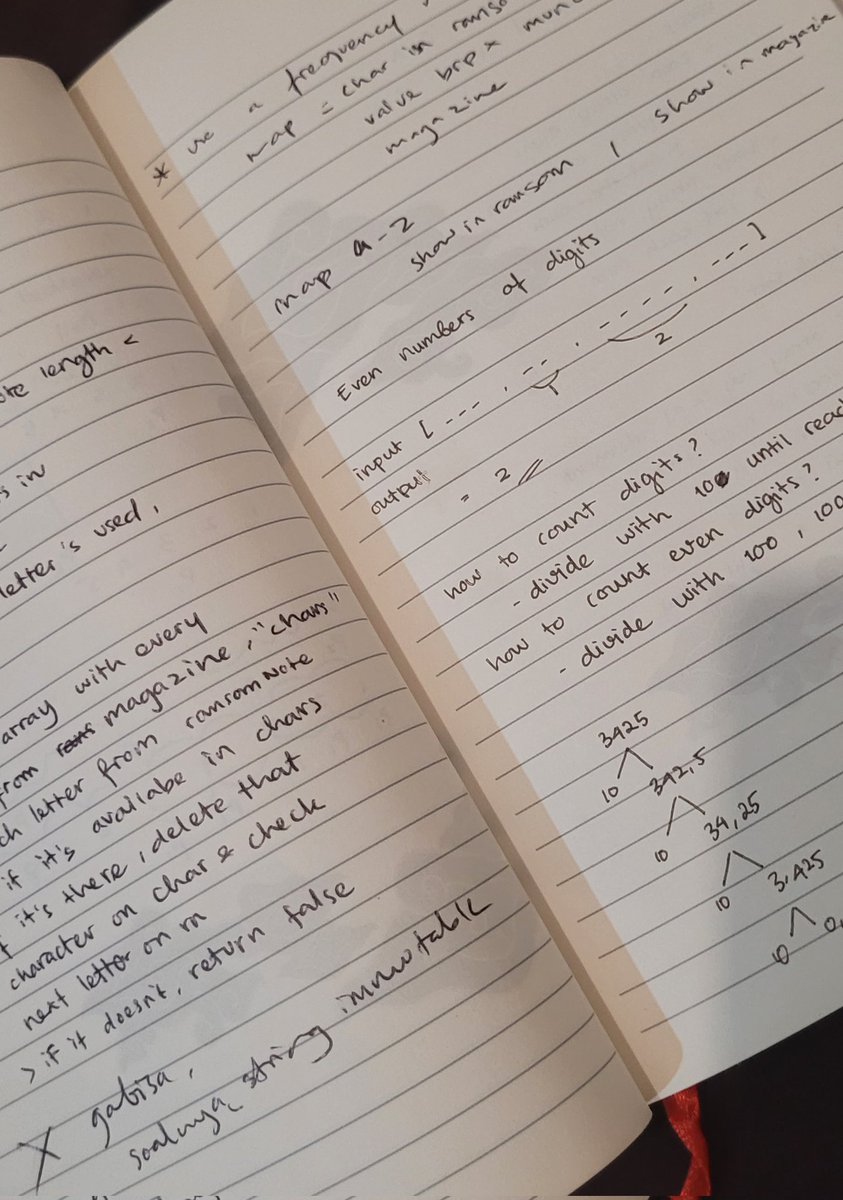 length <
in
letter's used,
array with every
from magazine, "chars"
letter from ransomNote
if it's availabe in chars
it's there, delete that
character on char & check
next letter on rn
> if it doesn't, return false
X gabisa,
soalnya string immutable
* use a frequency
map = char in
value brp x
magazine
map a - 2
show in ransom / show in magazine
Even numbers of digits
input [ --- , -- , ---- , --- ]
1 2
output = 2 //
how to count digits?
- divide with 10 until
how to count even digits?
- divide with 100, 100
3425
10 342,5
10 34,25
10 3,425
10 0,